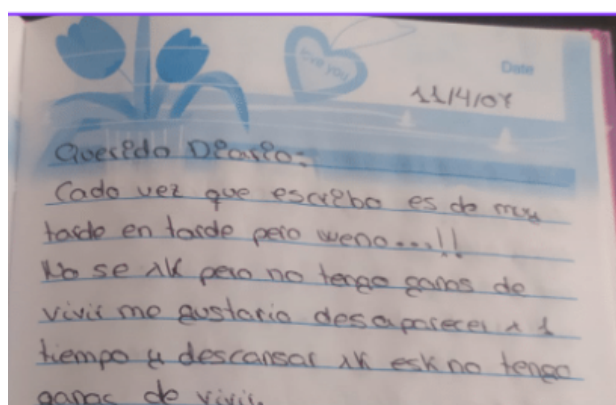 Love you
Date
11/4/07
Querido Diario:
Cada vez que escribo es de muy
tarde en tarde pero weno...!!
No se xk pero no tengo ganas de
vivir me gustaria desaparecer x 1
tiempo y descansar xk esk no tengo
ganas de vivir.